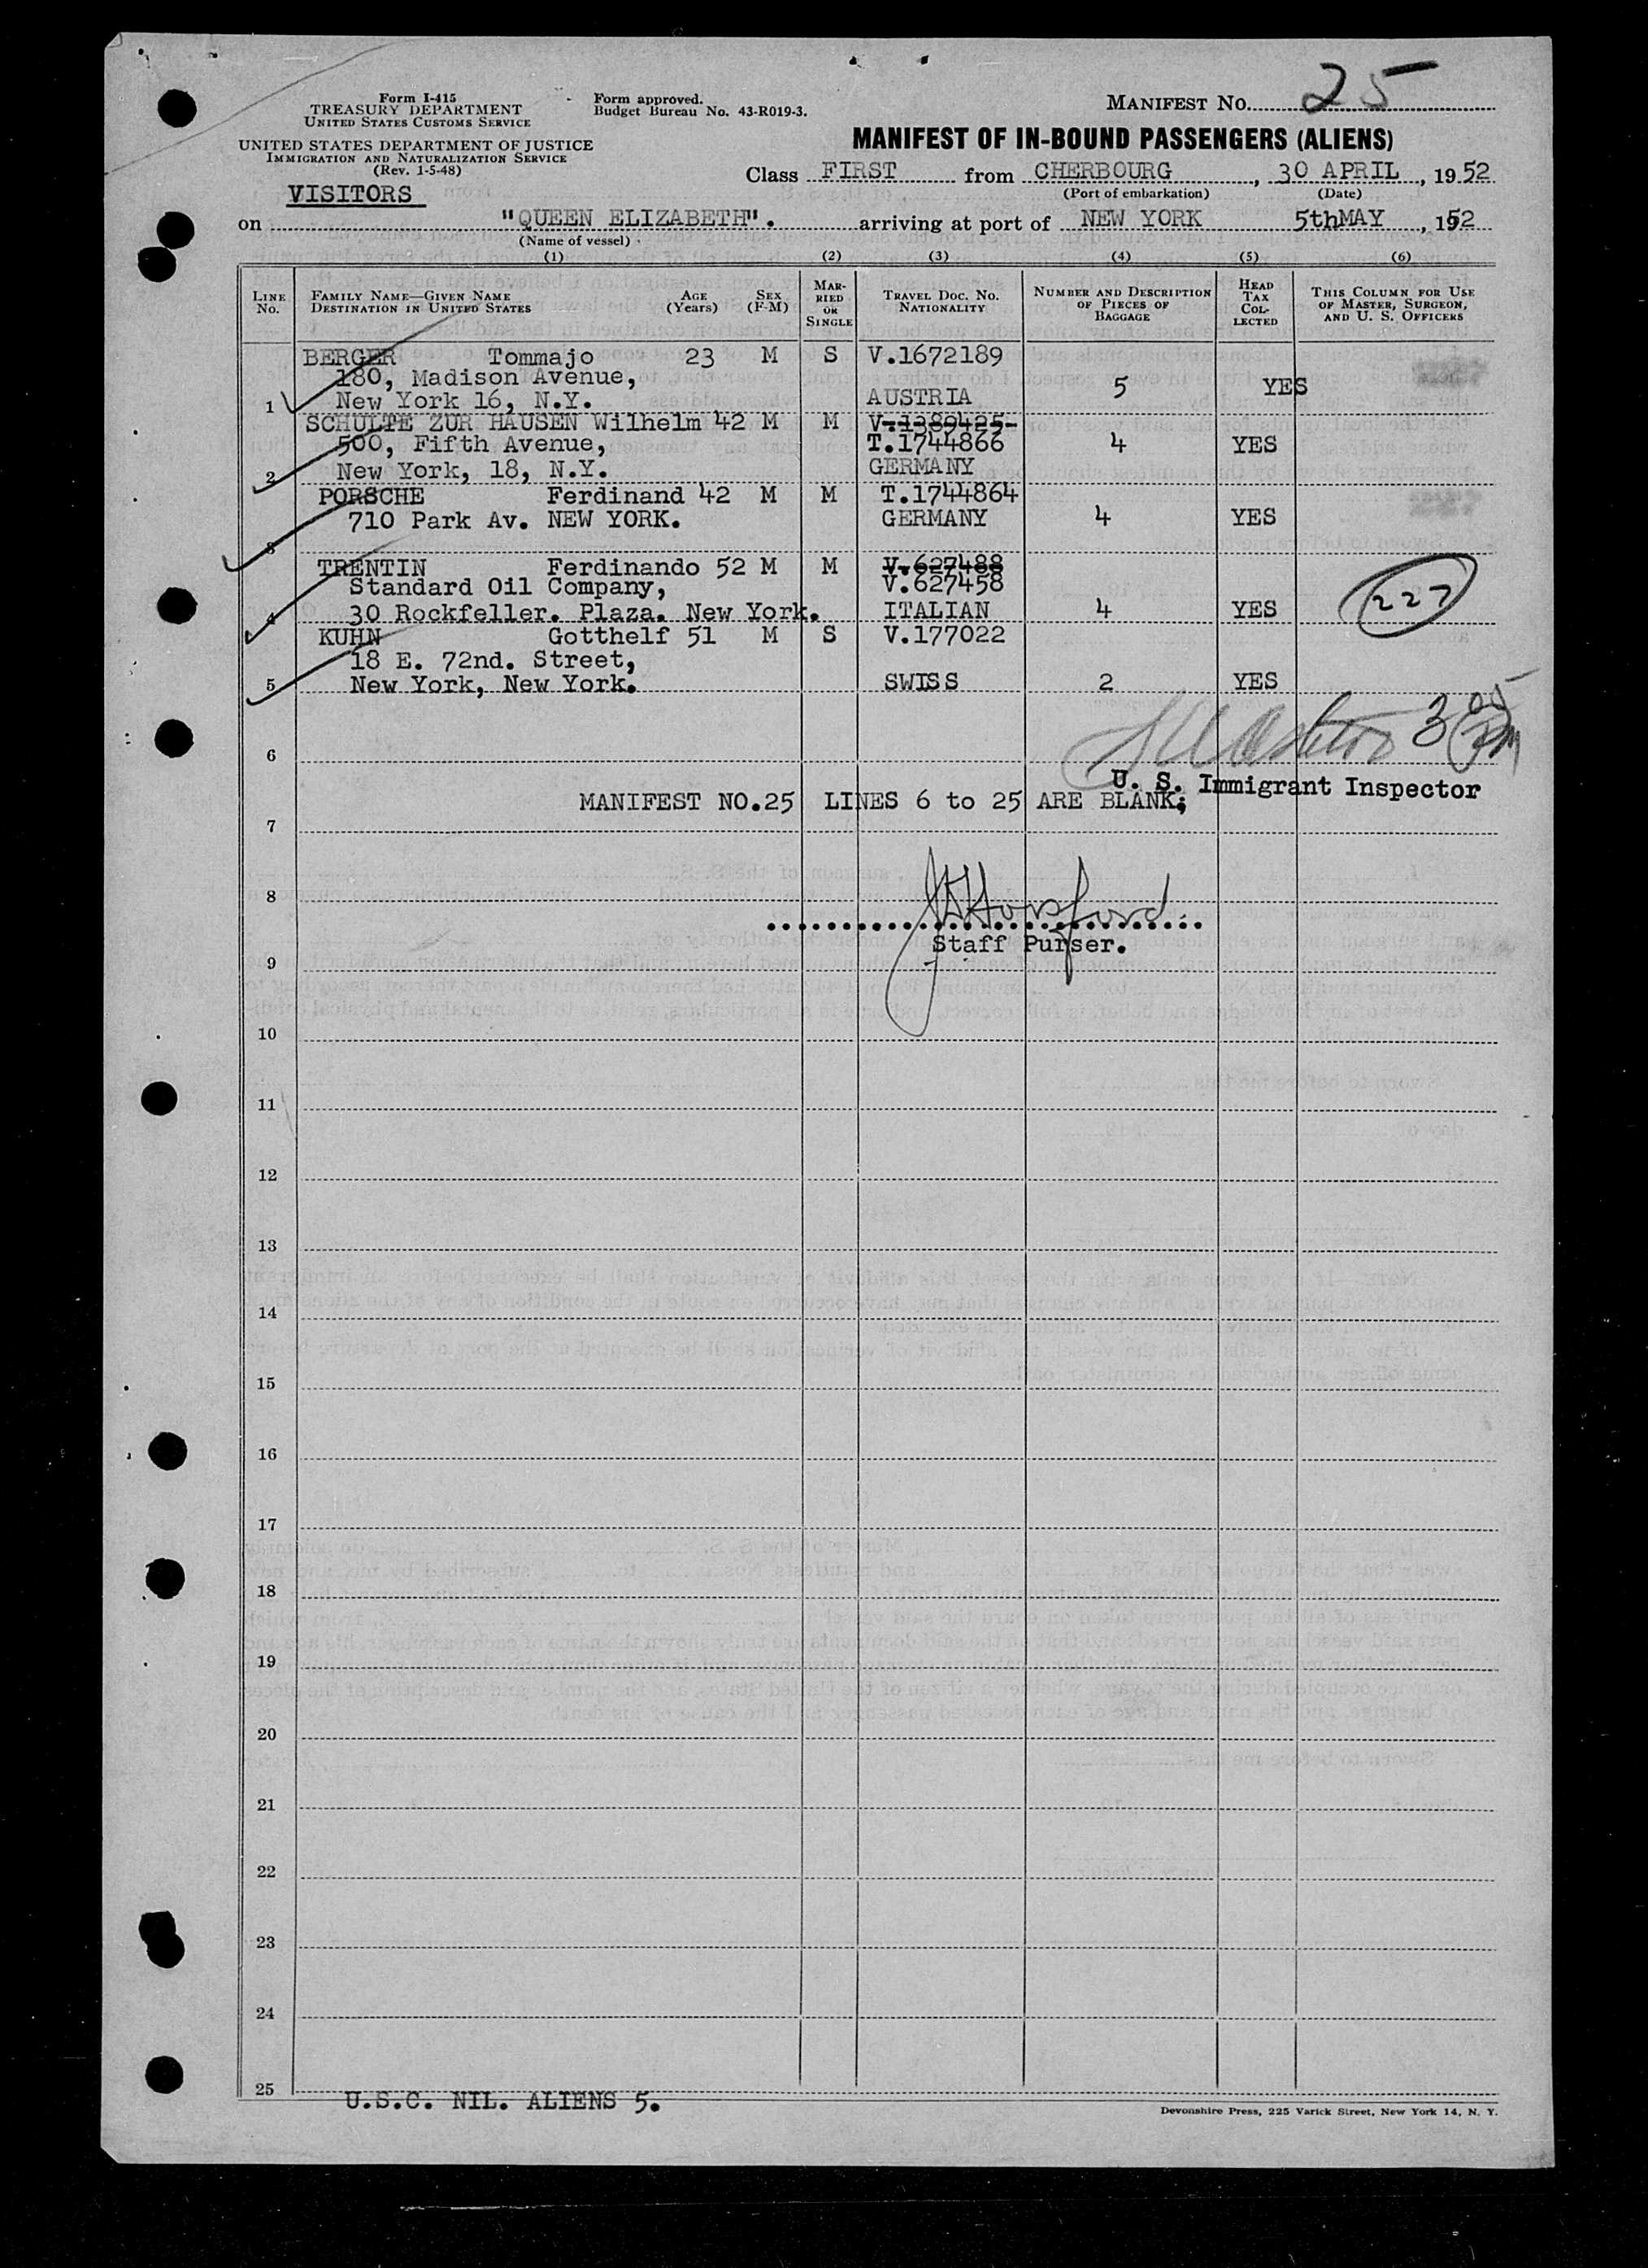 25
Form I-415
TREASURY DEPARTMENT
UNITED STATES CUSTOMS SERVICE
Form approved.
Budget Bureau No. 43-R019-3.
MANIFEST No.
UNITED STATES DEPARTMENT OF JUSTICE
IMMIGRATION AND NATURALIZATION SERVICE
(Rev. 1-5-48)
MANIFEST OF IN-BOUND PASSENGERS (ALIENS)
VISITORS
Class FIRST from CHERBOURG, 30 APRIL, 1952
(Port of embarkation) (Date)
on "QUEEN ELIZABETH". arriving at port of NEW YORK 5thMAY, 1952
(Name of vessel)
(1) (2) (3) (4) (5) (6)
LINE No. FAMILY NAME—GIVEN NAME DESTINATION IN UNITED STATES AGE (Years) SEX (F-M) MARRIED OR SINGLE TRAVEL DOC. NO. NATIONALITY NUMBER AND DESCRIPTION OF PIECES OF BAGGAGE HEAD TAX COLLECTED THIS COLUMN FOR USE OF MASTER, SURGEON, AND U. S. OFFICERS
BERGER Tommajo 23 M S V.1672189
180, Madison Avenue, 5 YES
1 New York 16, N.Y. AUSTRIA
SCHULTE ZUR HAUSEN Wilhelm 42 M M V.1389425-
500, Fifth Avenue, T.1744866 4 YES
2 New York, 18, N.Y. GERMANY
PORSCHE Ferdinand 42 M M T.1744864
710 Park Av. NEW YORK. GERMANY 4 YES
3
TRENTIN Ferdinando 52 M M V.627488
Standard Oil Company, V.627458
4 30 Rockfeller. Plaza. New York. ITALIAN 4 YES 227
KUHN Gotthelf 51 M S V.177022
18 E. 72nd. Street,
5 New York, New York. SWISS 2 YES
3 05 PM
6
U. S. Immigrant Inspector
MANIFEST NO.25 LINES 6 to 25 ARE BLANK;
7
8
Staff Purser.
9
10
11
12
13
14
15
16
17
18
19
20
21
22
23
24
25
U.S.C. NIL. ALIENS 5.
Devonshire Press, 225 Varick Street, New York 14, N. Y.